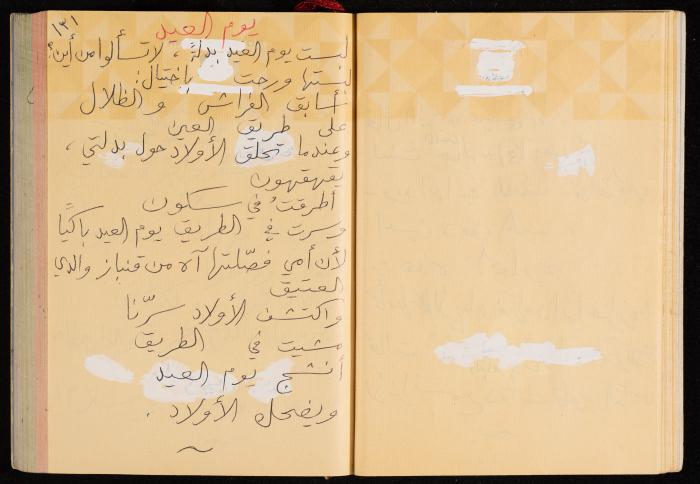 ١٣١
يوم العيد
لبست يوم العيد بدلةً ، لا تسألوا من أين؟
لبستها ورحت باختيال:
أسابق الفراش و الظلال
على طريق العين
وعندما تحلق الأولاد حول بدلتي ،
يقهقهون
أطرقتُ في سكون
وسرت في الطريق يوم العيد باكيًا
لأن أمي فصّلتها آه من قنباز والدي
العتيق
واكتشف الأولاد سرّنا
مشيت في الطريق
أنشج يوم العيد
ويضحك الأولاد .